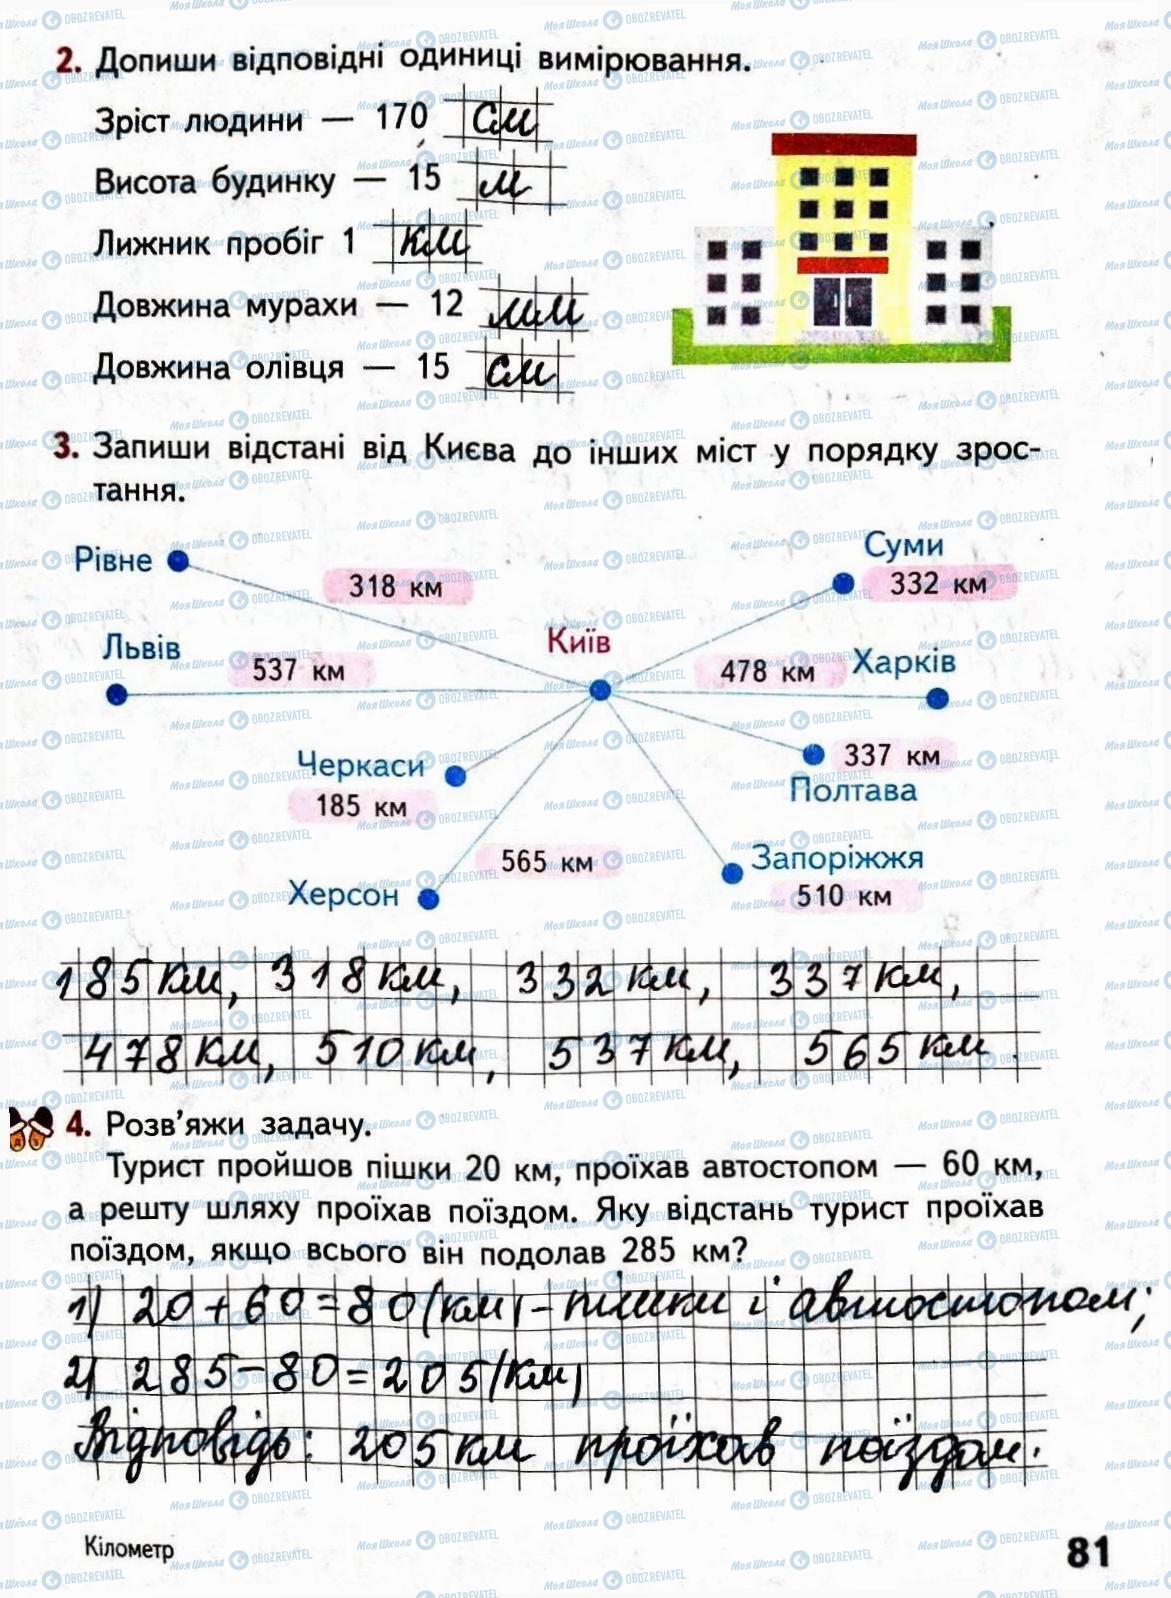 2. Допиши відповідні одиниці вимірювання.
Зріст людини — 170 см
Висота будинку — 15 м
Лижник пробіг 1 км
Довжина мурахи — 12 мм
Довжина олівця — 15 см
3. Запиши відстані від Києва до інших міст у порядку зрос-
тання.
Рівне
318 км
Суми
332 км
Львів
537 км
Київ
478 км
Харків
Черкаси
185 км
337 км
Полтава
565 км
Херсон
Запоріжжя
510 км
185 км, 318 км, 332 км, 337 км,
478 км, 510 км, 537 км, 565 км.
4. Розв'яжи задачу.
Турист пройшов пішки 20 км, проїхав автостопом — 60 км,
а решту шляху проїхав поїздом. Яку відстань турист проїхав
поїздом, якщо всього він подолав 285 км?
1) 20+60=80(км)-пішки і автостопом;
2) 285-80=205(км)
Відповідь: 205 км проїхав поїздом.
Кілометр
81
МояШкола OBOZREVATEL